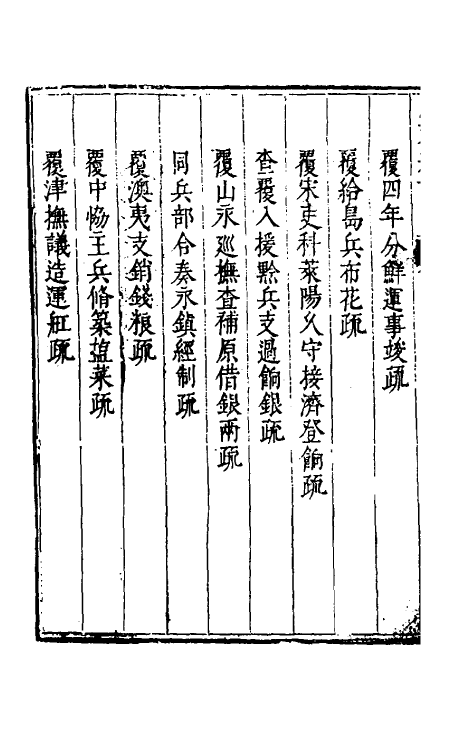 覆四年分鮮運事竣疏
覆給島兵布花疏
覆宋吏科萊陽久守接濟登餉疏
查覆入援黔兵支過餉銀疏
覆山永廵撫查補原借銀兩疏
同兵部合奏永鎮經制疏
覆澳夷支銷錢粮疏
覆中協王兵脩築葅菜疏
覆津撫議造運舡疏